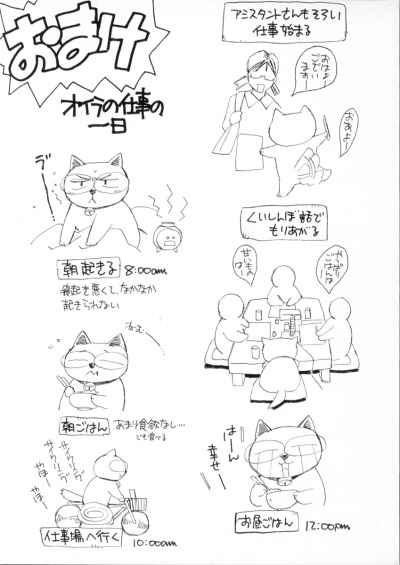 おまけ
オイラの仕事の
一日
デー
朝起きる 8:00am
寝起き悪くて、なかなか
起きられない
ねーむ
朝ごはん あまり食欲なし…
でも食べる
サイクリング
サイクリング
やほー
やほー
仕事場へ行く 10:00am
アシスタントさんもそろい
仕事始まる
おはよー
ござい
ます
おあよー
くいしんぼ話で
もりあがる
やっぱり
ごはんは
甘いもの
はー
はーん
幸せー
お昼ごはん 12:00pm